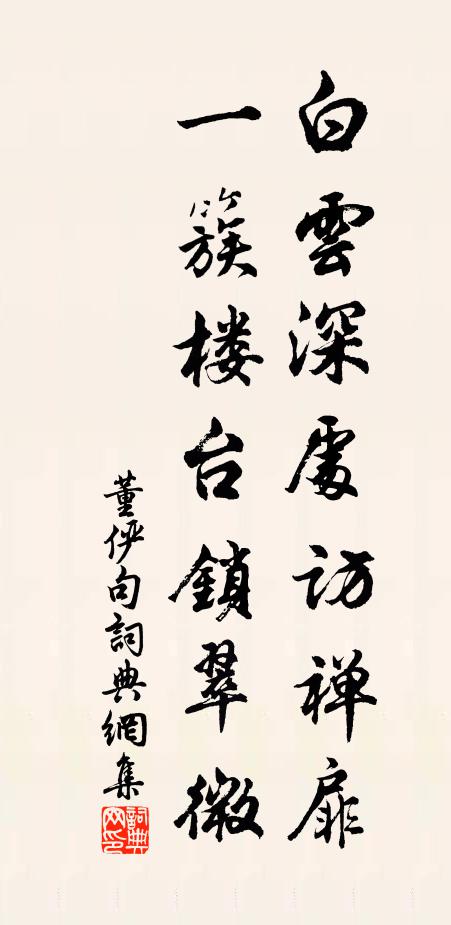 白雲深處訪禅扉
一簇楼台鎖翠微
董俨句詞典網集
詞典網印